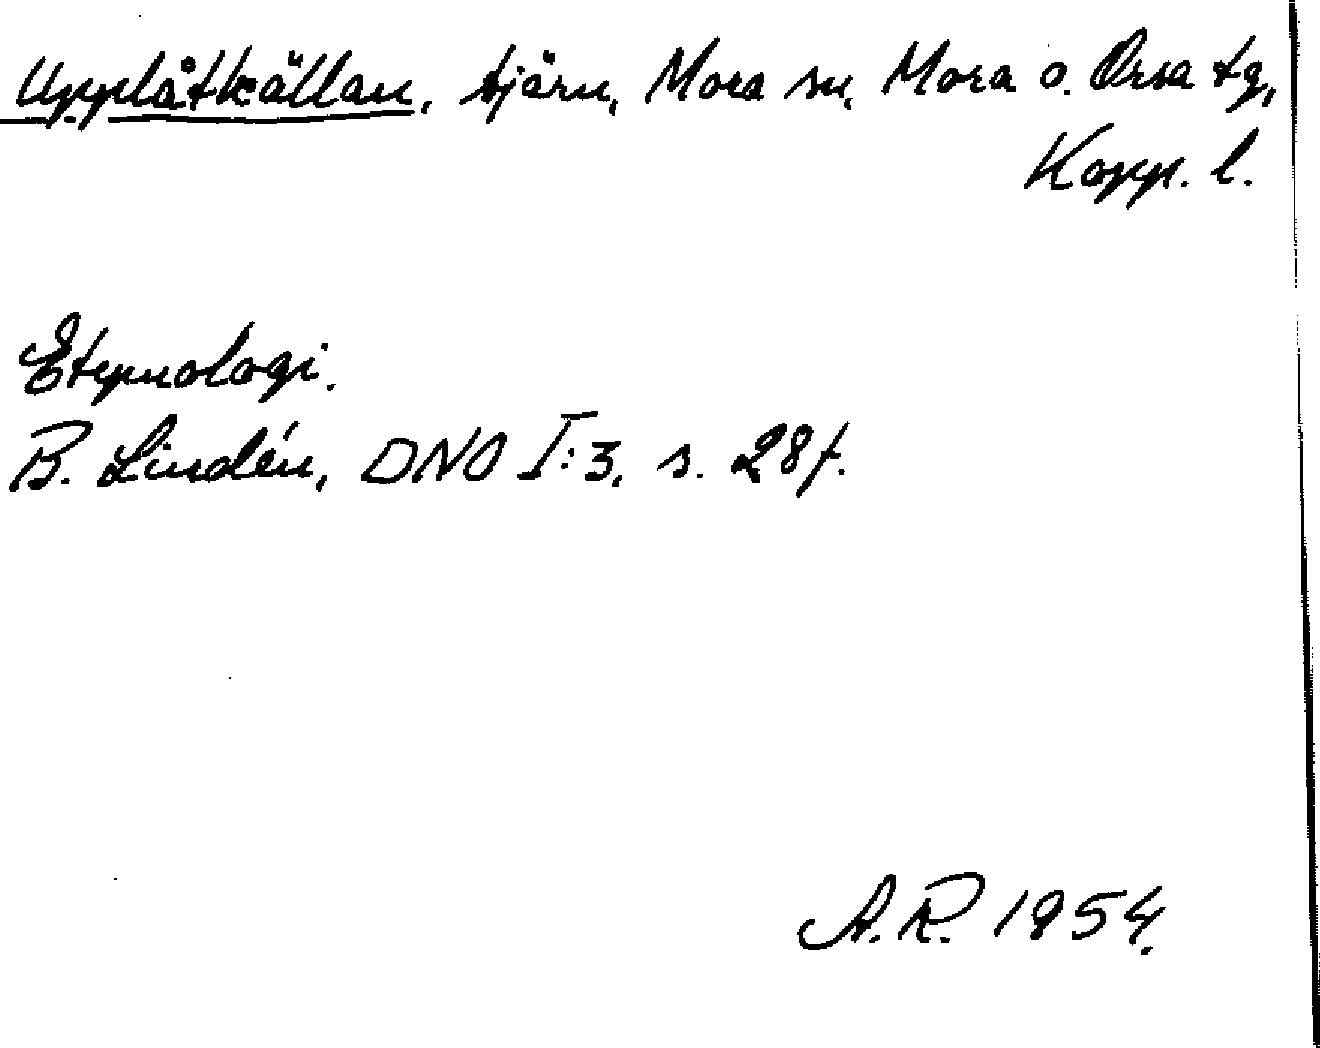 Upplåtkällan, tjärn, Mora sn, Mora o. Orsa tg,
Kopp. l.
Etymologi.
B. Lindén, DNO I:3, s. 28f.
A.R. 1954.